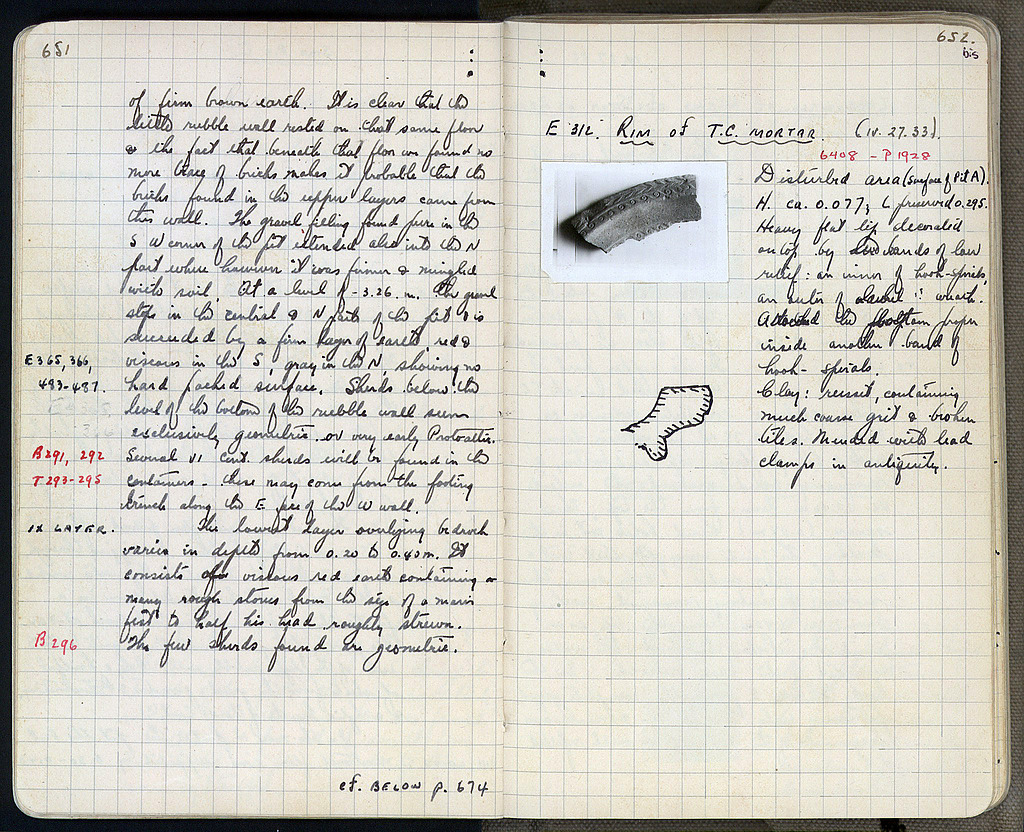 651
of firm brown earth. It is clear that the
little rubble wall rested on that same floor
& the fact that beneath that floor we found no
more trace of bricks makes it probable that the
bricks found in the upper layers came from
this wall. The gravel filling found pure in the
S W corner of the pit extended also into the N
part where however it was firmer & mingled
with soil. At a level of -3.26 m. the gravel
stops in the central & N parts of the pit & is
succeeded by a firm layer of earth, red &
E 365, 366,
viscous in the S, gray in the N, showing no
483-487.
hard packed surface. Sherds below the
level of the bottom of the rubble wall seem
exclusively geometric or very early Protoattic.
B 291, 292
Several VI cent. sherds will be found in the
T 293-295
containers - these may come from the footing
trench along the E face of the W wall.
IX LAYER.
The lowest layer overlying bedrock
varies in depth from 0.20 to 0.40 m. It
consists of viscous red earth containing
many rough stones from the size of a man's
fist to half his head roughly strewn.
B 296
The few sherds found are geometric.
cf. BELOW p. 674
652.
bis
E 312. RIM of T.C. MORTAR. (IV. 27.33).
6408 - P 1928
Disturbed area (surface of Pit A).
H. ca. 0.077; L. preserved 0.295.
Heavy flat lip decorated
on top by two bands of low
relief: an inner of hook-spirals,
an outer of wreath.
the proper
inside another band of
hook-spirals.
Clay: reddish, containing
much coarse grit & broken
tiles. Mended with lead
clamps in antiquity.